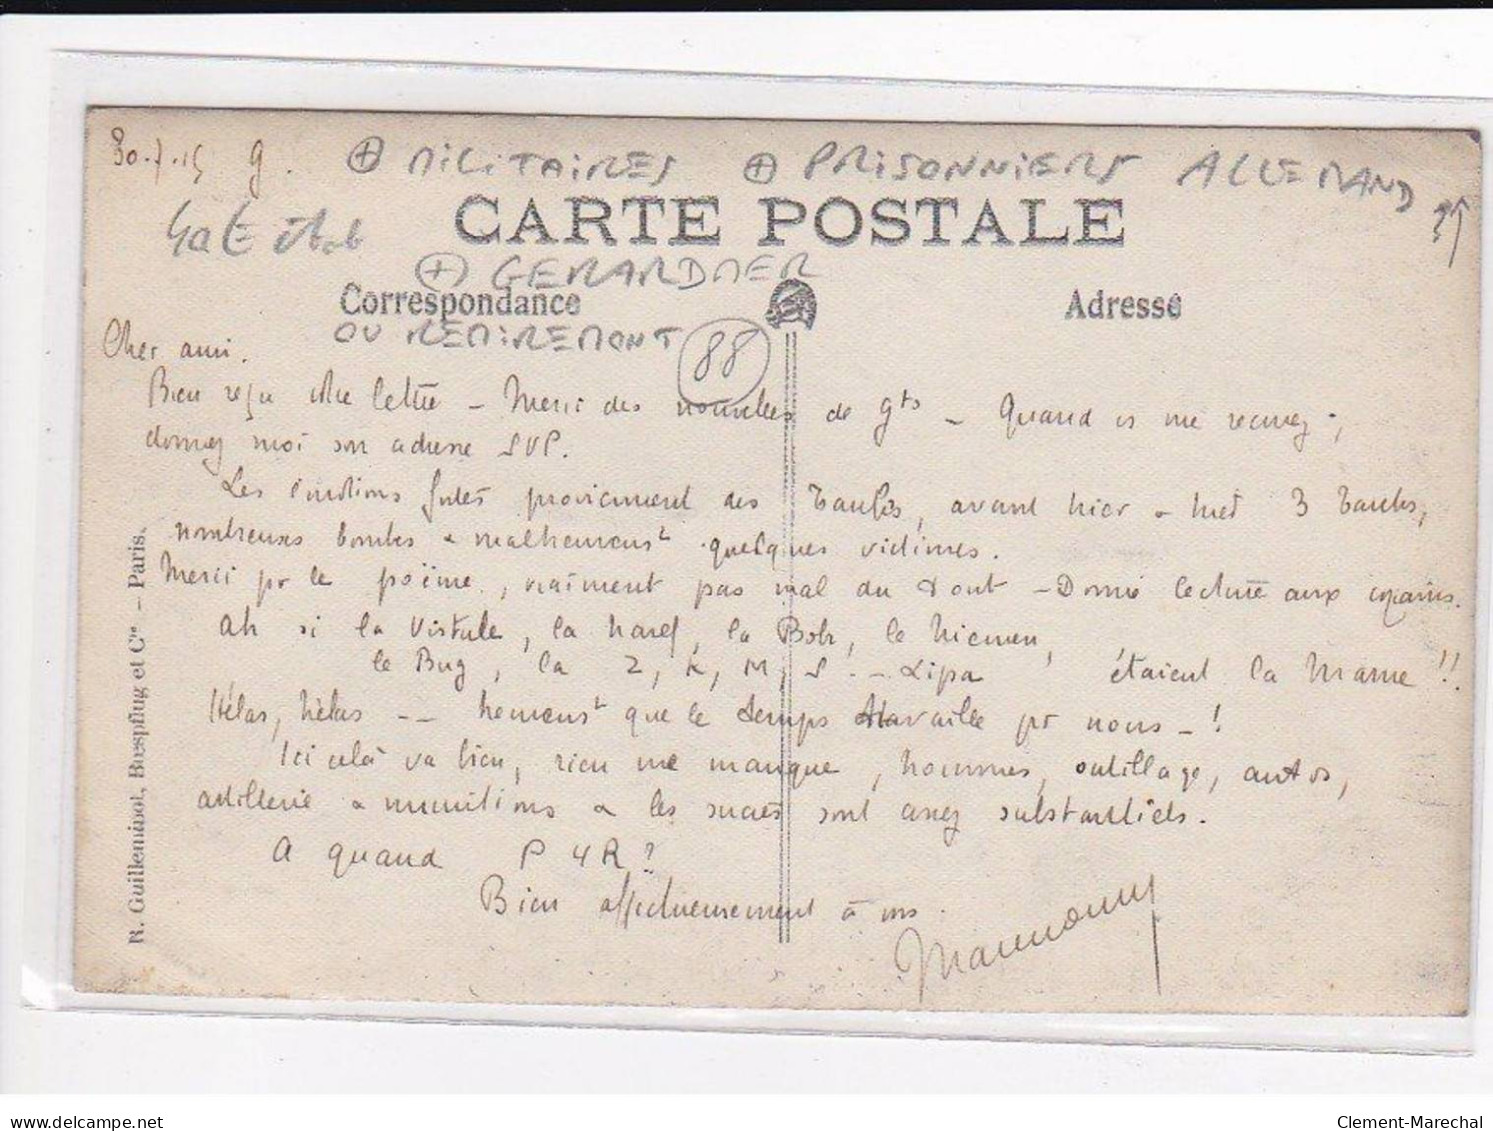 30.7.15 g.
⊕ MILITAIRES ⊕ PRISONNIERS ALLEMAND
CARTE POSTALE
⊕ GERARDMER
Correspondance
Adresse
OU REMIREMONT 88
Cher ami.
Bien reçu lettre – Merci des nouvelles de gts – Quand vs me
donnez moi son adresse SVP.
Les provienment des Taubes, avant hier 3 Taubes,
nombreuses bombes & malheureust quelques victimes.
Merci pr le poëme, vraiment pas mal du tout – Donné lecture aux copains.
Ah si la Vistule, la Naref, la Bobr, le Niemen,
le Bug, la Z, K, M, S .. Lipa étaient la Marne !!
Hélas, hélas -- heureust que le temps travaille pr nous – !
Ici celà va bien, rien ne manque, hommes, outillage, autos,
artillerie & munitions & les sucres sont assez substantiels.
A quand P 4 R ?
Bien affectueusement à vs.
R. Guilleminot, Bœspflug et Cie – Paris.
Clement-Marechal